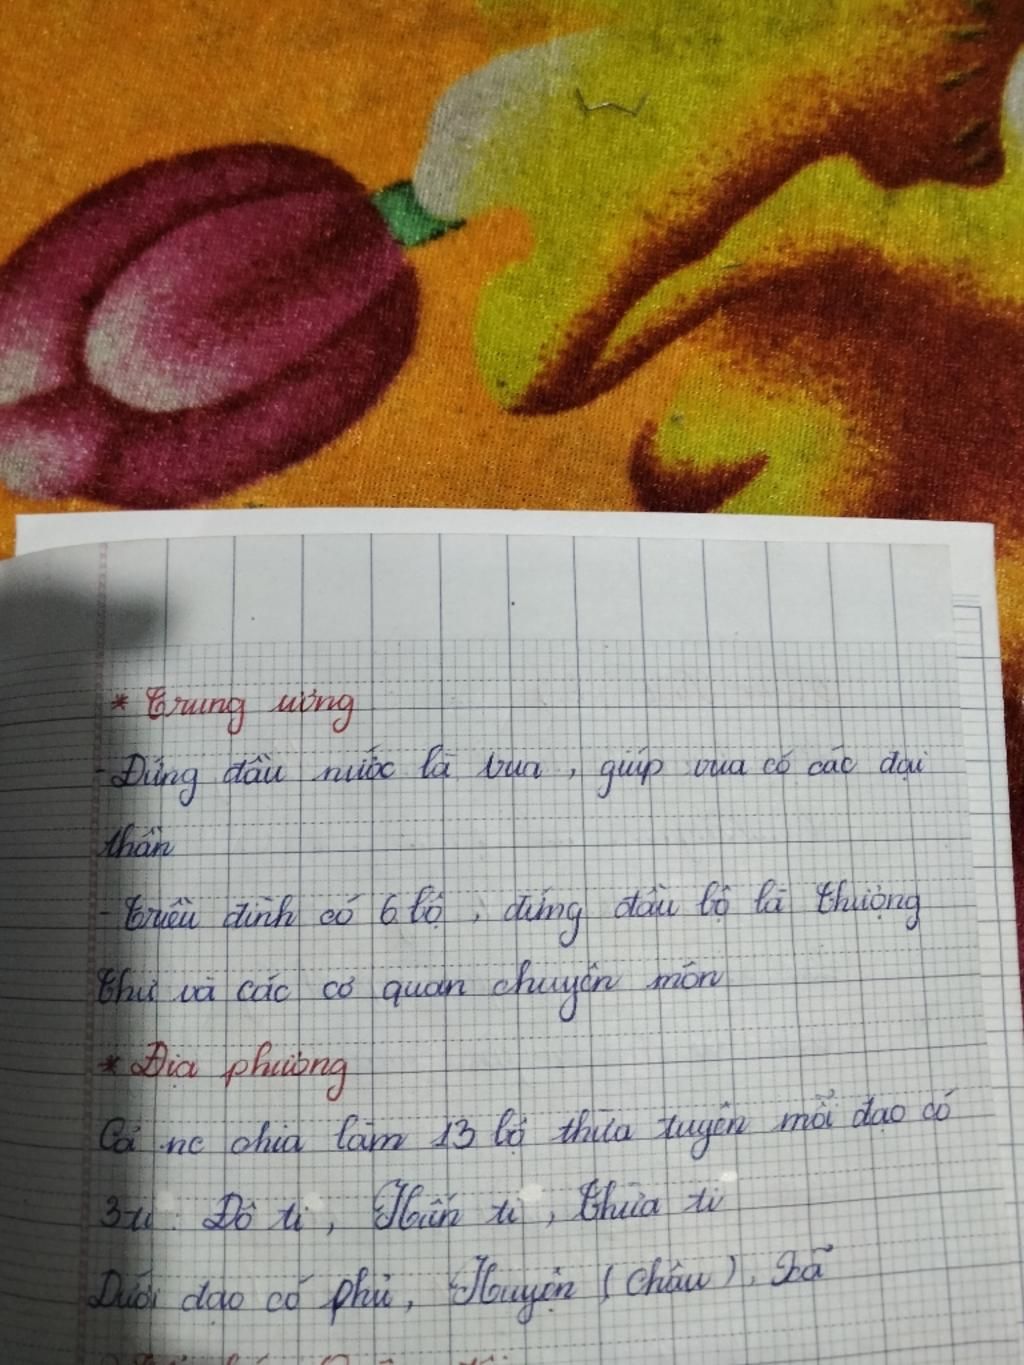 * Trung ương
- Đứng đầu nước là vua, giúp vua có các đại
thần
- Triều đình có 6 bộ, đứng đầu bộ là Thượng
thư và các cơ quan chuyên môn
* Địa phương
Cả nc chia làm 13 bộ thừa tuyên mỗi đạo có
3 ti: Đô ti, Hiến ti, Thừa ti
Dưới đạo có phủ, Huyện (Châu), Xã